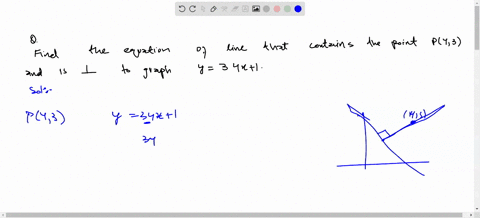 Q
Find the equation of line that contains the point P(4,3)
and is ⊥ to graph y = 34x+1.
Soln.
P(4,3) y = 34x+1
34
(4,3)